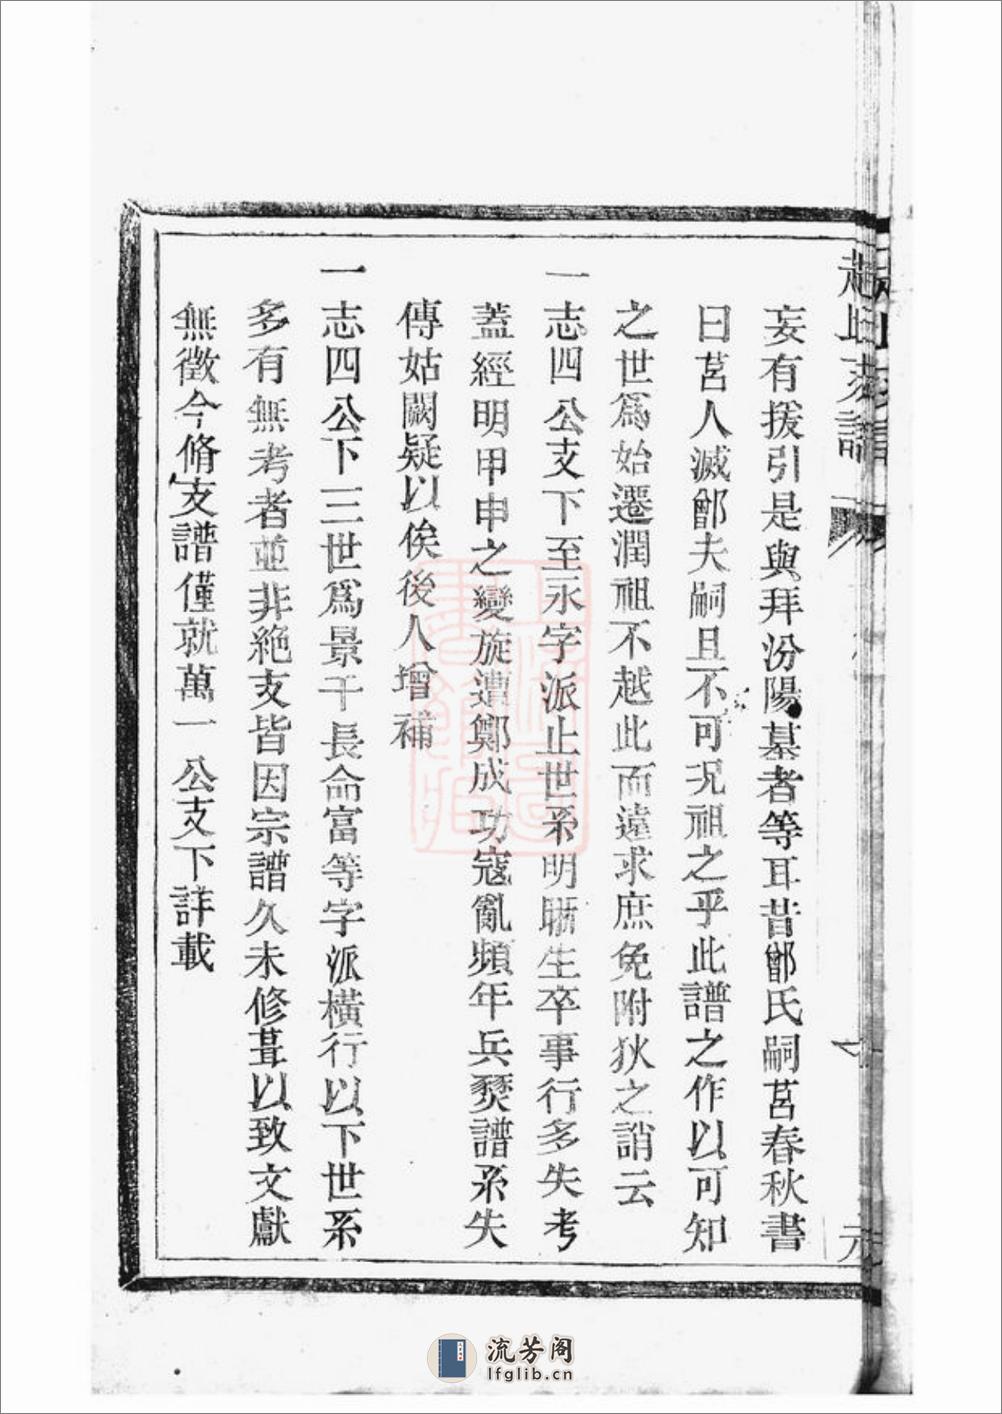 妄有援引是與拜汾陽墓者等耳昔鄫氏嗣莒春秋書
曰莒人滅鄫夫嗣且不可况祖之乎此譜之作以可知
之世爲始遷潤祖不越此而遠求庶免附狄之誚云
一志四公支下至永字派止世系明晰生卒事行多失考
蓋經明甲申之變旋遭鄭成功寇亂頻年兵燹譜系失
傳姑闕疑以俟後人增補
一志四公下三世爲景千長命富等字派橫行以下世系
多有無考者並非絶支皆因宗譜久未修葺以致文獻
無徵今脩支譜僅就萬一公支下詳載
流芳阁
lfglib.cn